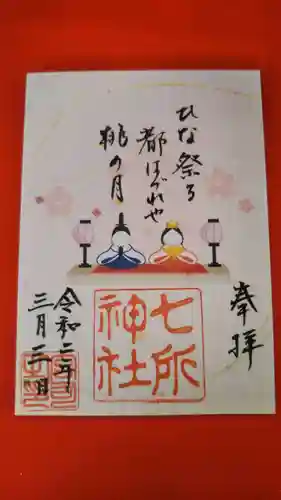 ひな祭る
都はづれや
桃の月
奉拝
七所
神社
令和二年
三月三日